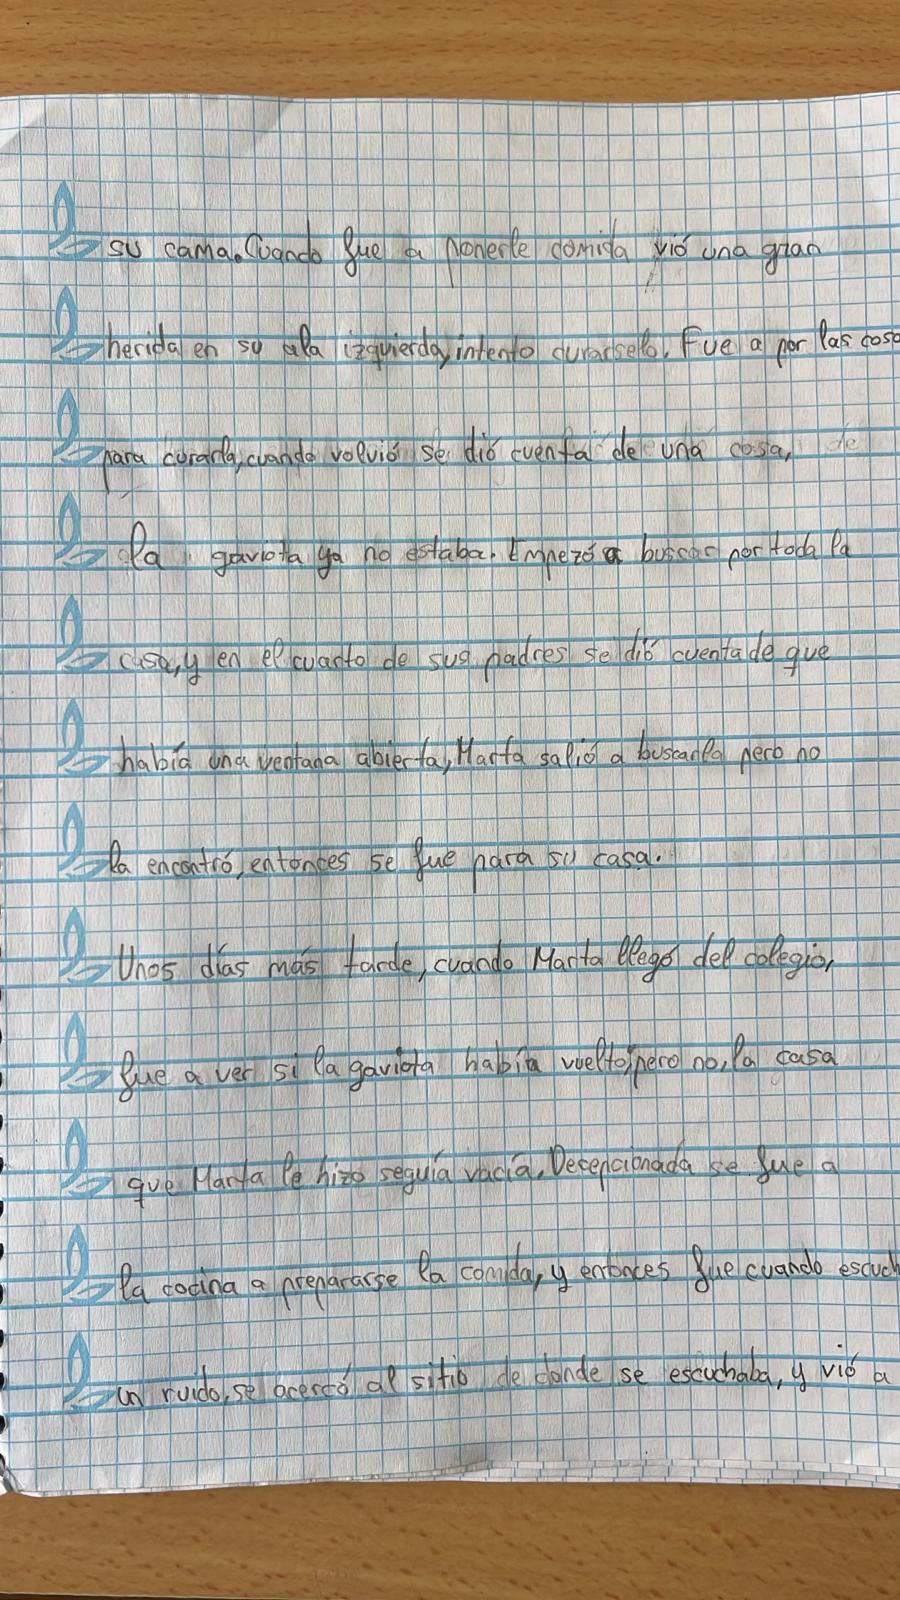 su cama. Cuando fue a ponerle comida vió una gran
herida en su ala izquierda, intento curarselo. Fue a por las cosa
para curarla, cuando volvió se dió cuenta de una cosa, de
la gaviota ya no estaba. Empezó a buscar por toda la
casa, y en el cuarto de sus padres se dió cuenta de que
había una ventana abierta, Marta salió a buscarla pero no
la encontró, entonces se fue para su casa.
Unos días más tarde, cuando Marta llegó del colegio,
fue a ver si la gaviota había vuelto, pero no, la casa
que Marta le hizo seguía vacía. Decepcionada se fue a
la cocina a prepararse la comida, y entonces fue cuando escuch
un ruido, se acercó al sitio de donde se escuchaba, y vió a